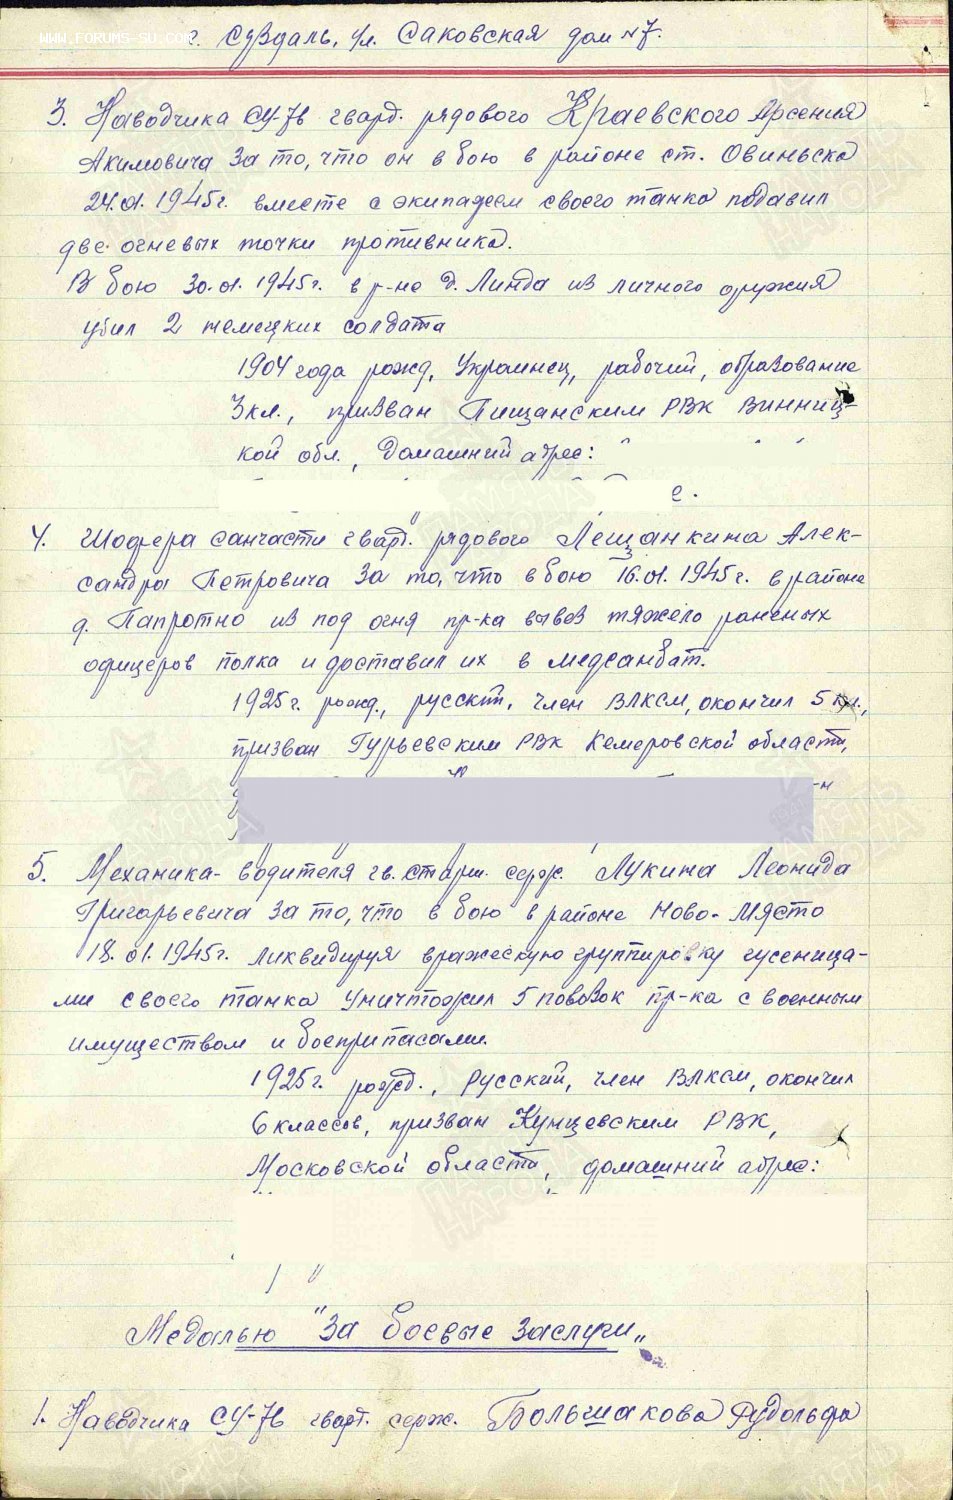 WWW.FORUMS-SU.COM
г. Суздаль, ул. Саковская дом №7.
3. Наводчика СУ-76 гвард. рядового Краевского Арсения
Акимовича За то, что он в бою в районе ст. Овиньска
24.01.1945г. вместе с экипажем своего танка подавил
две огневых точки противника.
В бою 30.01.1945г. в р-не д. Линда из личного оружия
убил 2 немецких солдата
1904 года рожд, Украинец, рабочий, образование
3 кл., призван Пищанским РВК Винниц-
кой обл., Домашний адрес:
с.
4. Шофера санчасти гвард. рядового Лещанкина Алек-
сандра Петровича За то, что в бою 16.01.1945г. в районе
д. Папротно из под огня пр-ка вывез тяжело раненых
офицеров полка и доставил их в медсанбат.
1925г. рожд., русский, член ВЛКСМ, окончил 5 кл.,
призван Гурьевским РВК Кемеровской области,
-н
5. Механика-водителя гв. старш. серж. Лукина Леонида
Григорьевича За то, что в бою в районе Ново-Място
18.01.1945г. ликвидируя вражескую группировку гусеница-
ми своего танка уничтожил 5 повозок пр-ка с военным
имуществом и боеприпасами.
1925г. рожд., Русский, член ВЛКСМ, окончил
6 классов, призван Кунцевским РВК,
Московской области, домашний адрес:
Медалью "За боевые заслуги"
1. Наводчика СУ-76 гвард. серж. Большакова Рудольфа
ПАМЯТЬ НАРОДА